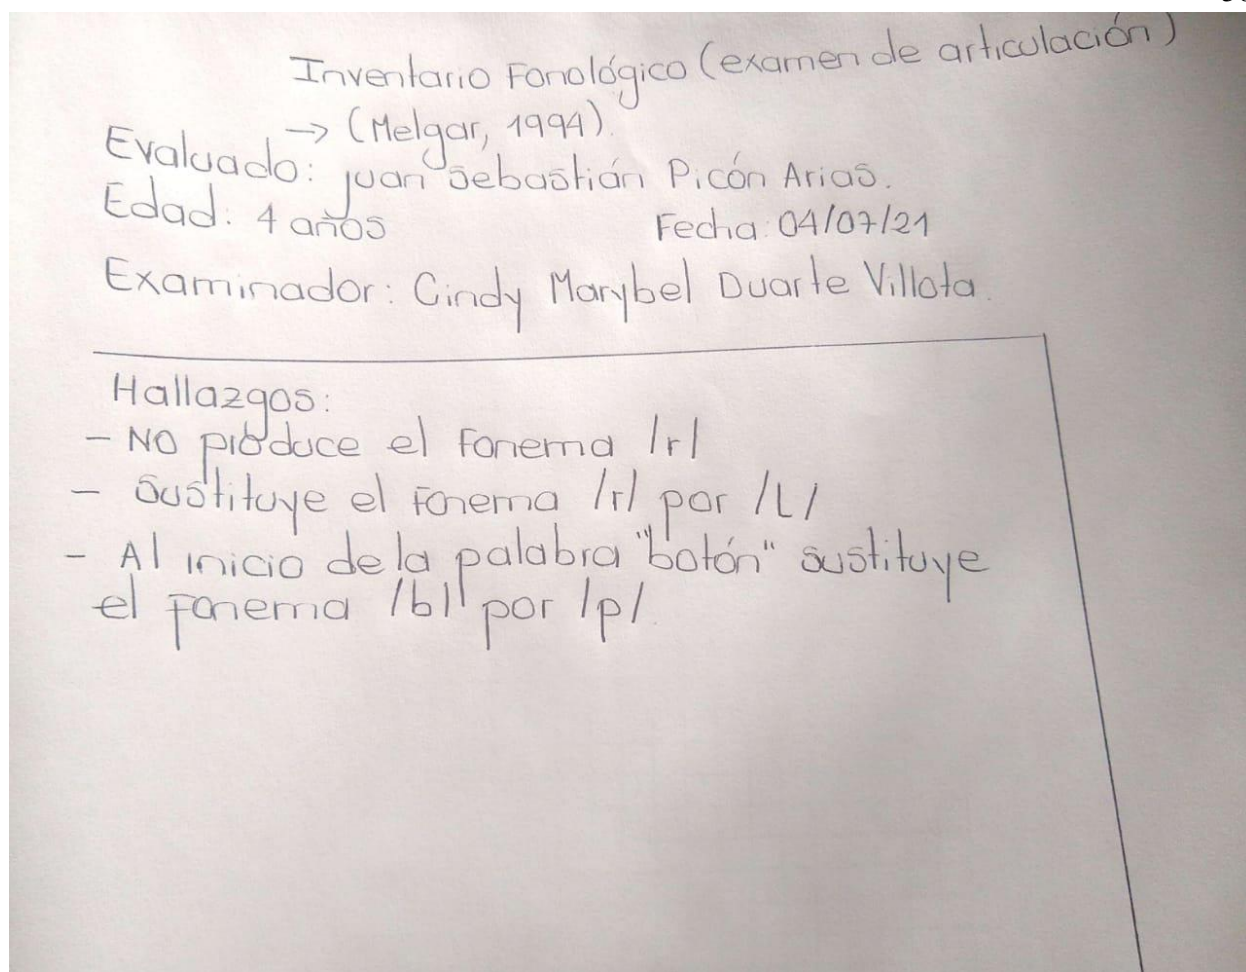 Inventario Fonológico (examen de articulación)
→ (Melgar, 1994).
Evaluado: Juan Sebastián Picón Arias.
Edad: 4 años Fecha: 04/07/21
Examinador: Cindy Marybel Duarte Villota.
Hallazgos:
- NO produce el fonema /r/
- Sustituye el fonema /r/ por /L/
- Al inicio de la palabra "botón" sustituye
el fonema /b/ por /p/.